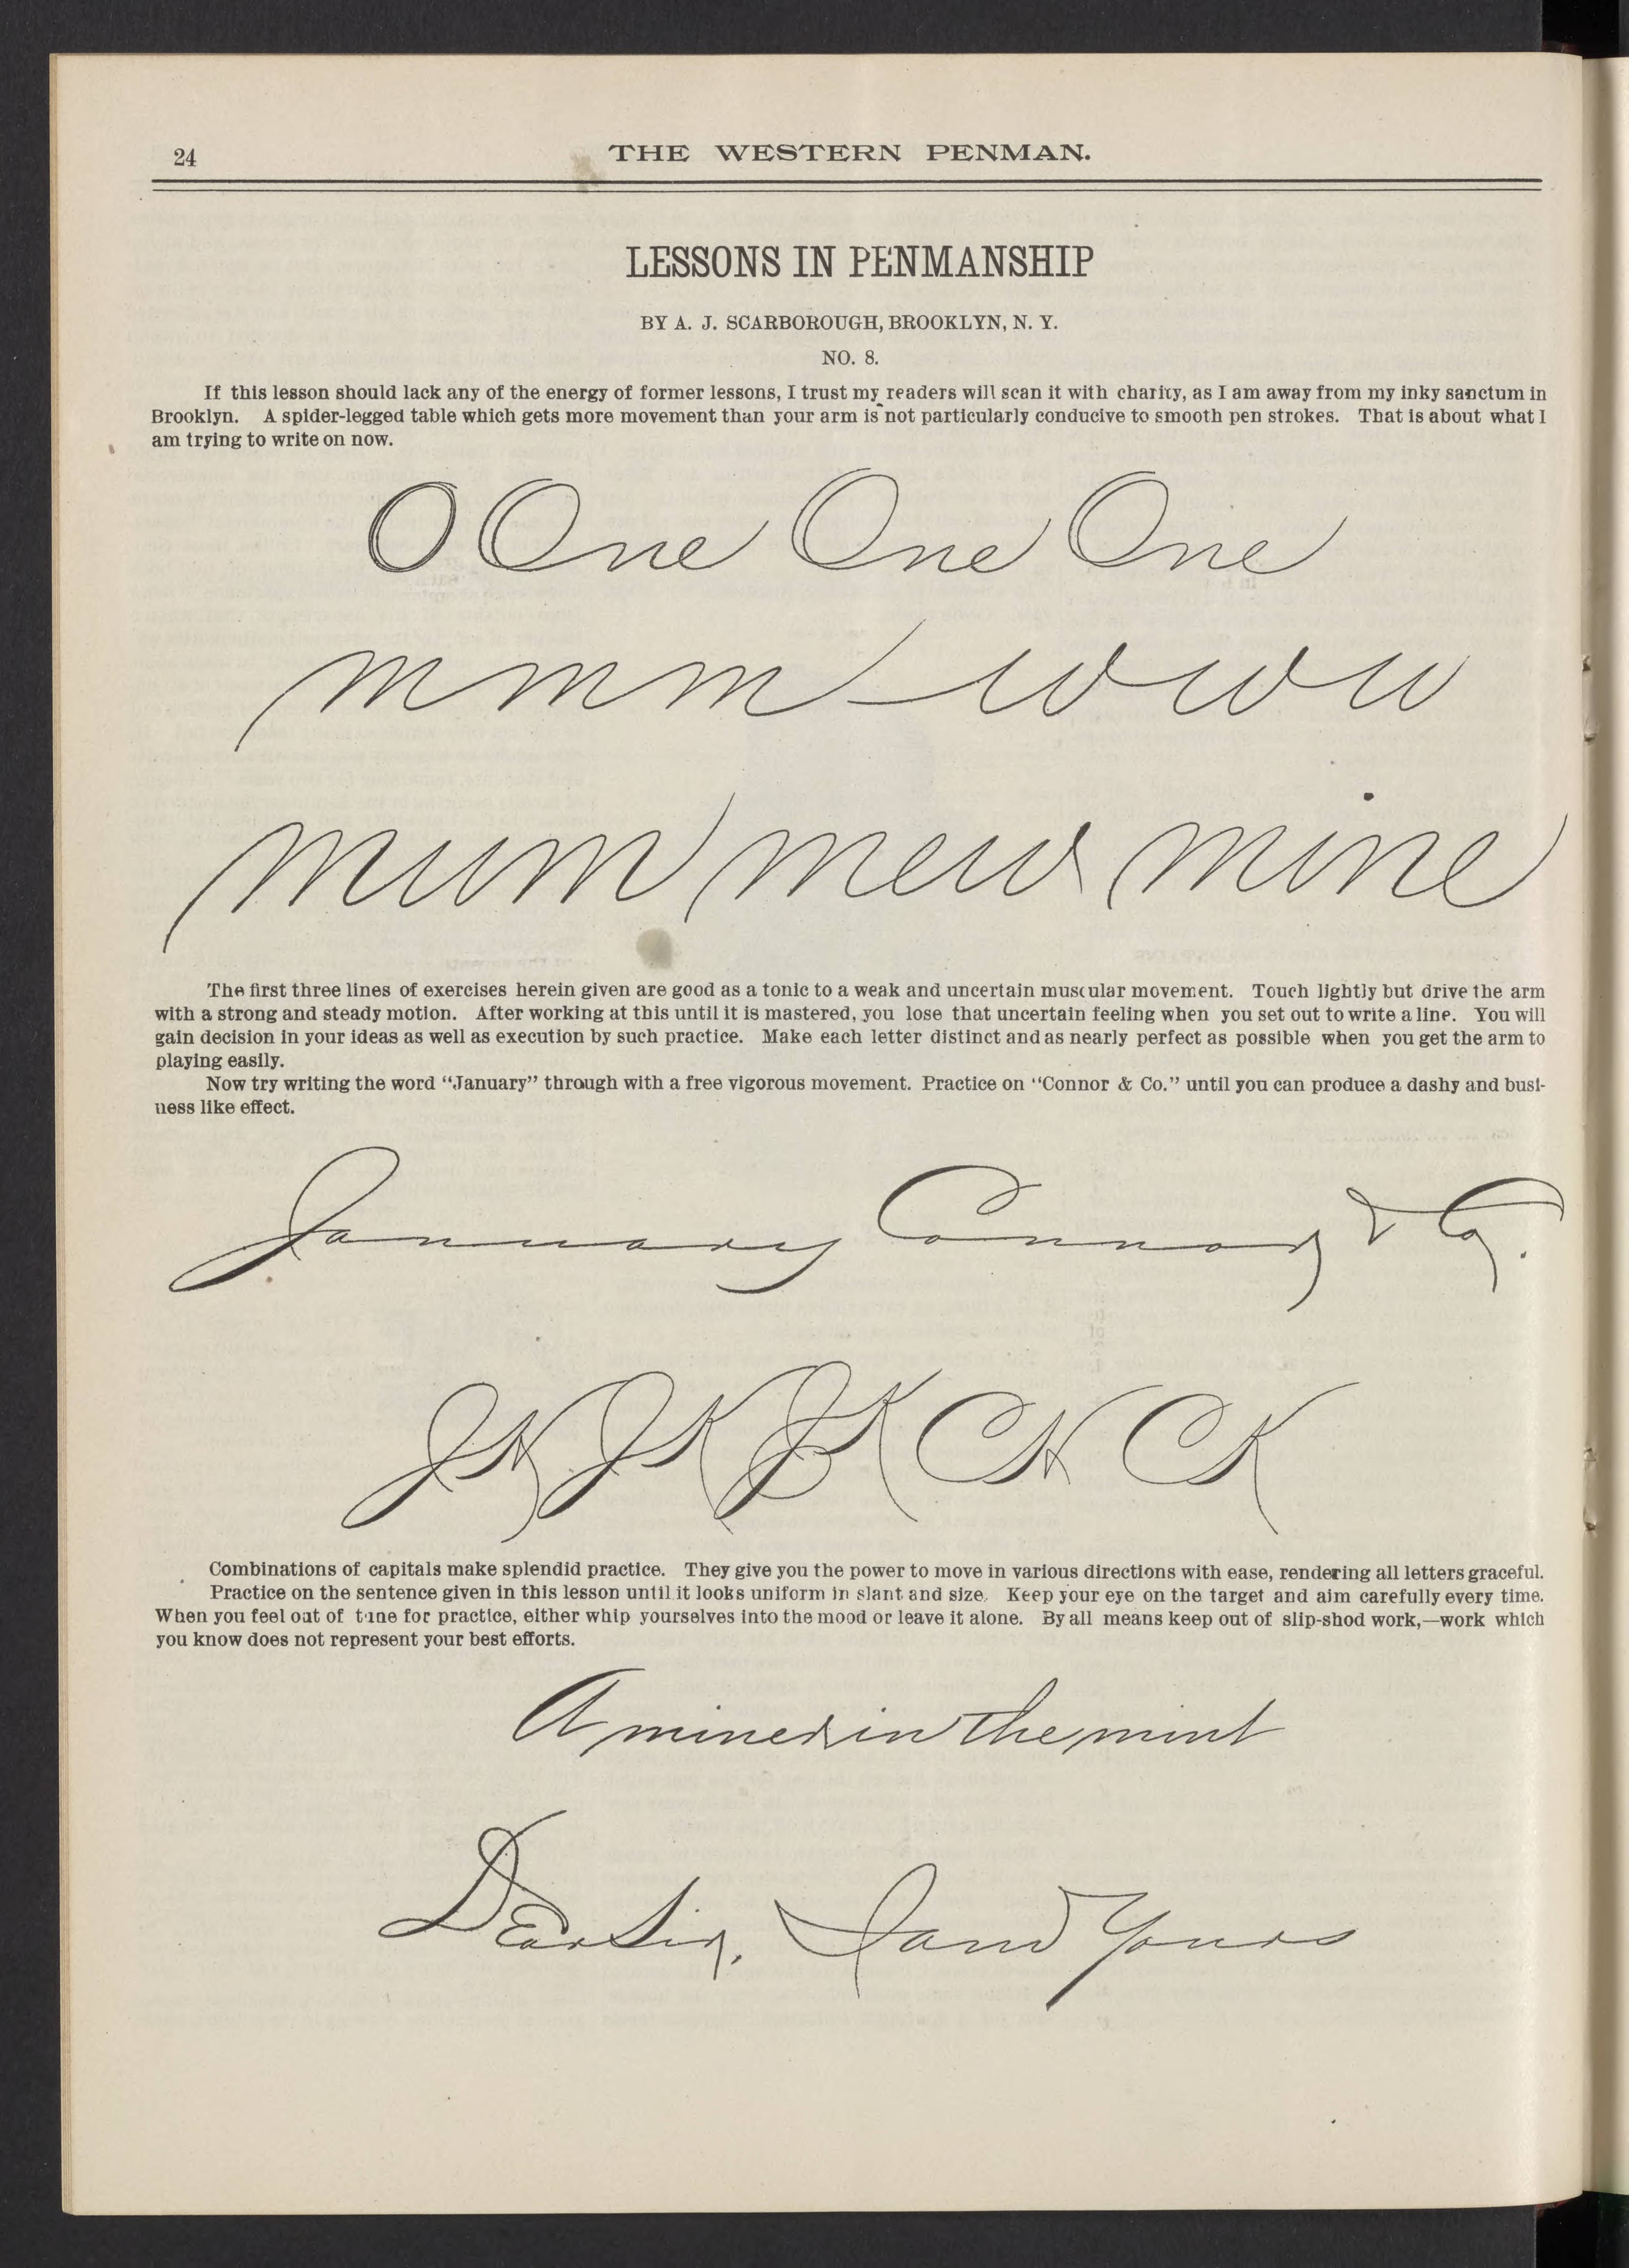 24
THE WESTERN PENMAN.
LESSONS IN PENMANSHIP
BY A. J. SCARBOROUGH, BROOKLYN, N. Y.
NO. 8.
If this lesson should lack any of the energy of former lessons, I trust my readers will scan it with charity, as I am away from my inky sanctum in
Brooklyn. A spider-legged table which gets more movement than your arm is not particularly conducive to smooth pen strokes. That is about what I
am trying to write on now.
O One One One
m m m w w w
mum mew mine
The first three lines of exercises herein given are good as a tonic to a weak and uncertain muscular movement. Touch lightly but drive the arm
with a strong and steady motion. After working at this until it is mastered, you lose that uncertain feeling when you set out to write a line. You will
gain decision in your ideas as well as execution by such practice. Make each letter distinct and as nearly perfect as possible when you get the arm to
playing easily.
Now try writing the word "January" through with a free vigorous movement. Practice on "Connor & Co." until you can produce a dashy and busi-
ness like effect.
January Connor & Co.
JK JK JK CK CK
Combinations of capitals make splendid practice. They give you the power to move in various directions with ease, rendering all letters graceful.
Practice on the sentence given in this lesson until it looks uniform in slant and size. Keep your eye on the target and aim carefully every time.
When you feel out of tune for practice, either whip yourselves into the mood or leave it alone. By all means keep out of slip-shod work,—work which
you know does not represent your best efforts.
A miner in the mint
Dear Sir, I am Yours